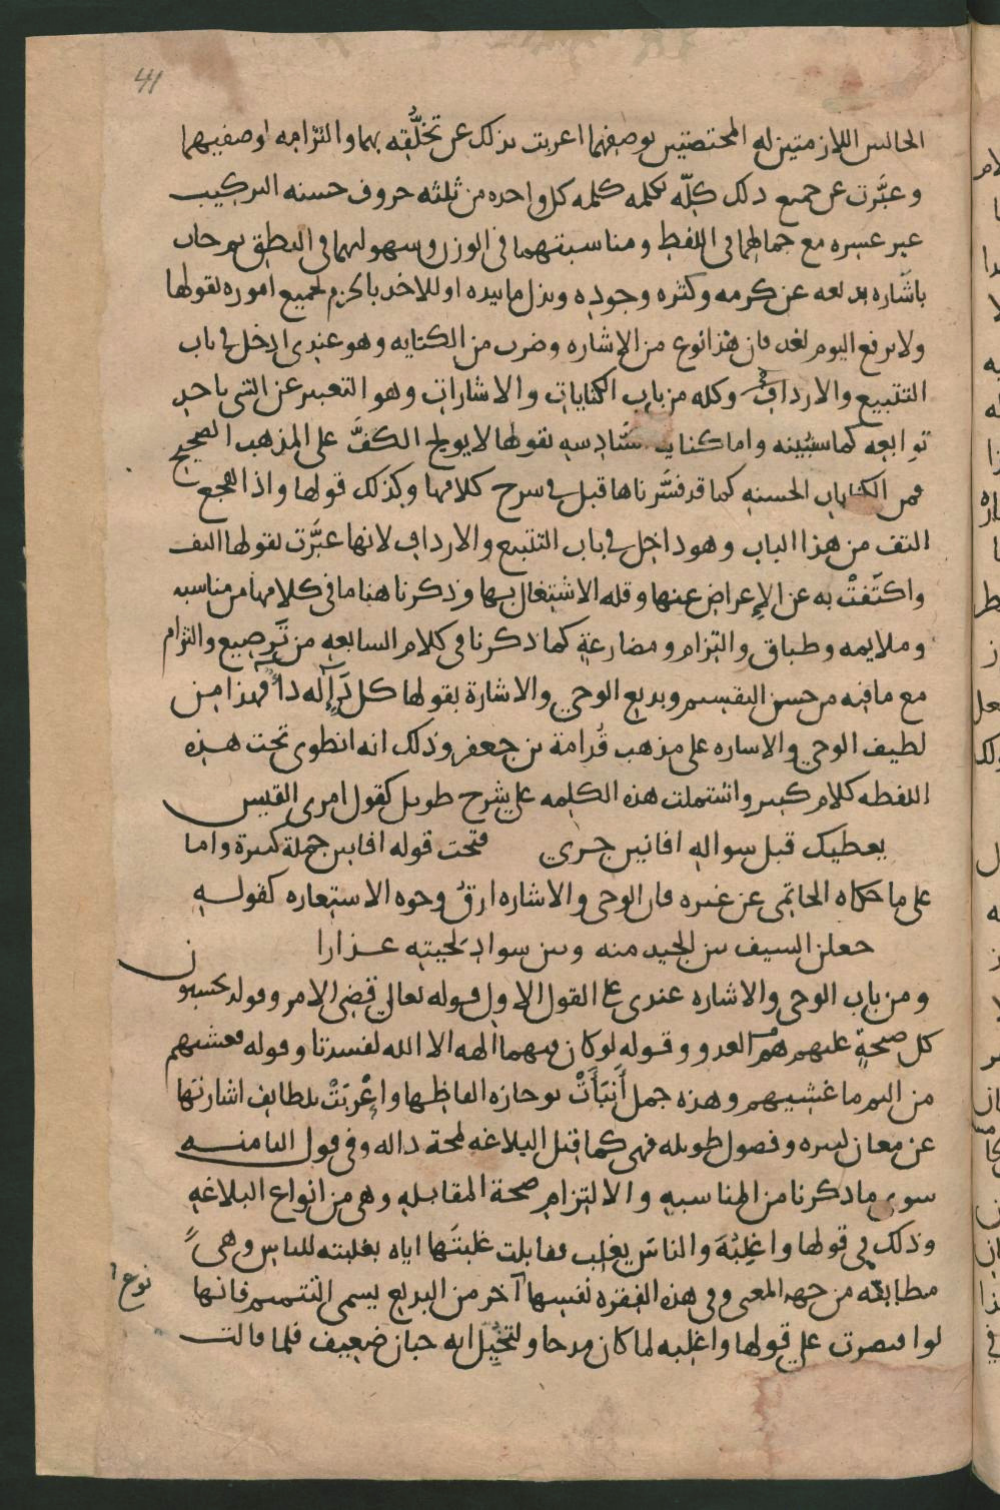 41
الحالتين اللازمتين له المختصتين بوصفهما اعربت بذلك عن تخلّقه بهما والتزامه اوصفيهما
وعبّرت عن جميع ذلك كلّه بكلمه كلمه كل واحده من ثلثه حروف حسنه التركيب
غير عسره مع جمالهما في اللفظ ومناسبتهما في الوزن وسهولتهما في النطق ثم جات
باشاره بديعه عن كرمه وكثره وجوده وبذل ما بيده او للاخذ بالحزم لجميع اموره بقولها
ولا يرفع اليوم لغد فان هذا نوع من الاشاره وضرب من الكنايه وهو عندي ادخل في باب
التتبيع والارداف وكله من باب الكنايات والاشارات وهو التعبير عن الشي باحد
توابعه كما سنبينه واما كناية سادسه بقولها لا يولج الكفَّ على المذهب الصحيح
فمن الكنايات الحسنه كما قد فسّرناها قبل في شرح كلامها وكذلك قولها واذا هجع
التف من هذا الباب وهو داخل في باب التتبيع والارداف لانها عبَّرت بقولها التف
واكتفتْ به عن الإعراض عنها وقله الاشتغال بها وذكرنا هنا ما في كلامها من مناسبه
وملايمه وطباق والتزام ومضارعة كما ذكرنا في كلام السابعه من ترصيع والتزام
مع ما فيه من حسن التقسيم وبديع الوحي والاشارة بقولها كل داء له داء فهذا من
لطيف الوحي والاساره على مذهب قُدامة بن جعفر وذلك انه انطوى تحت هذه
اللفظه كلام كبير واشتملت هذه الكلمه على شرح طويل كقول امرى القيس
يعطيك قبل سواله افانين جري فتحت قوله افانين جملة كبيرة واما
على ما حكاه الحاتمي عن غيره فان الوحي والاشاره ارقّ وجوه الاستعاره كقوله
جعلن السيف بين الجيد منه وبين سواد لحيته عذارا
ومن باب الوحي والاشاره عندي على القول الاول قوله تعالى قضي الامر وقوله يحسبون
كل صيحةٍ عليهم هم العدو وقوله لو كان فيهما آلهه الا الله لفسدتا وقوله فغشيهم
من اليم ما غشيهم وهذه جمل أَنبَأَتْ بوجازه الفاظها واعْرَبَتْ بلطايف اشارتها
عن معان كثيره وفصول طويله فهي كما قيل البلاغه لمحة داله وفي قول الثامنه
سوى ما ذكرنا من المناسبه والالتزام صحة المقابله وهي من انواع البلاغه
وذلك في قولها واغلِبُهَ والناسَ يغلِب فقابلت غلبتَها اياه بغلبته للناس وهي
مطابقه من جهه المعنى وفي هذه الفقره نفسها آخر من البديع يسمى التتميم فانها
نوع
لو اقتصرت على قولها واغلبه لما كان مدحا ولتخيّل انه جبان ضعيف فلما قالت